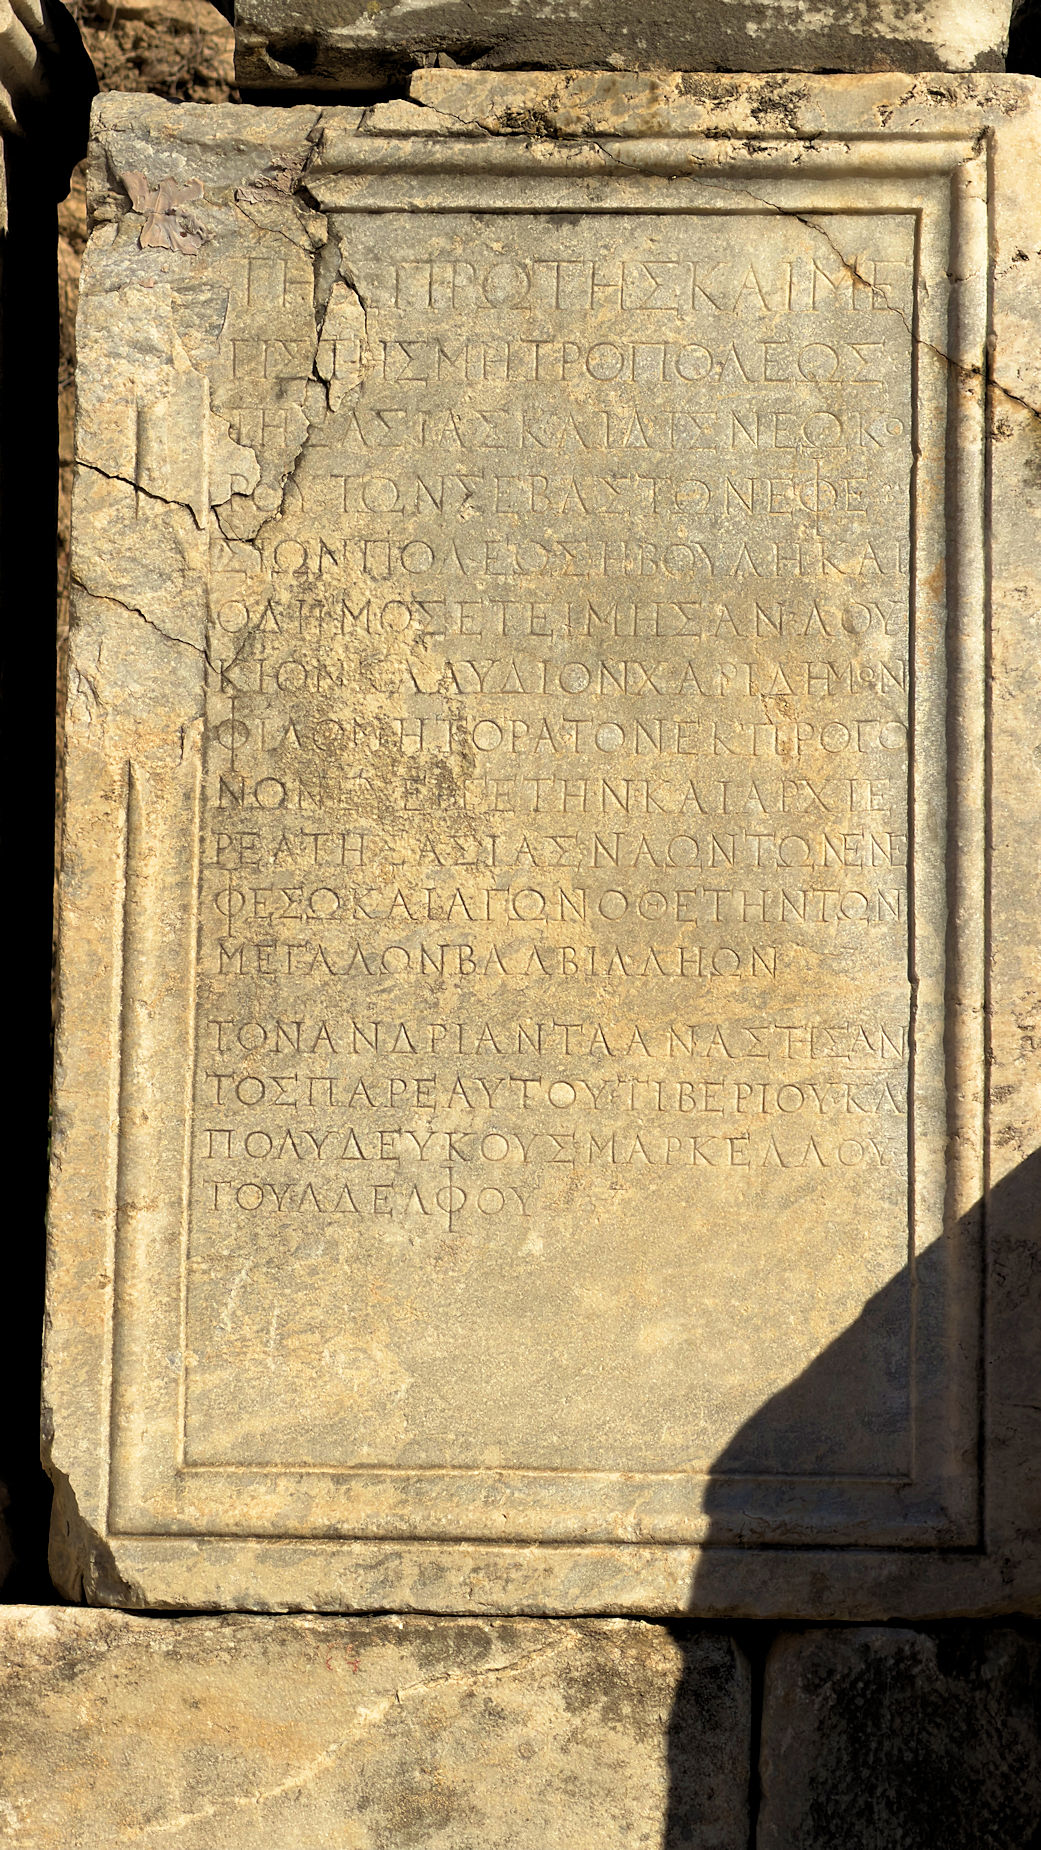 ΤΗΣ ΠΡΩΤΗΣ ΚΑΙ ΜΕ
ΓΙΣΤΗΣ ΜΗΤΡΟΠΟΛΕΩΣ
ΤΗΣ ΑΣΙΑΣ ΚΑΙ ΔΙΣ ΝΕΩΚΟ
ΡΟΥ ΤΩΝ ΣΕΒΑΣΤΩΝ ΕΦΕ
ΣΙΩΝ ΠΟΛΕΩΣ Η ΒΟΥΛΗ ΚΑΙ
Ο ΔΗΜΟΣ ΕΤΕΙΜΗΣΑΝ ΛΟΥ
ΚΙΟΝ ΚΛΑΥΔΙΟΝ ΧΑΡΙΔΗΜΟΝ
ΦΙΛΟΜΗΤΟΡΑ ΤΟΝ ΕΚ ΠΡΟΓΟ
ΝΩΝ ΕΥΕΡΓΕΤΗΝ ΚΑΙ ΑΡΧΙΕ
ΡΕΑ ΤΗΣ ΑΣΙΑΣ ΝΑΩΝ ΤΩΝ ΕΝ Ε
ΦΕΣΩ ΚΑΙ ΑΓΩΝΟΘΕΤΗΝ ΤΩΝ
ΜΕΓΑΛΩΝ ΒΑΛΒΙΛΛΗΩΝ
ΤΟΝ ΑΝΔΡΙΑΝΤΑ ΑΝΑΣΤΗΣΑΝ
ΤΟΣ ΠΑΡ ΕΑΥΤΟΥ ΤΙΒΕΡΙΟΥ ΚΛ
ΠΟΛΥΔΕΥΚΟΥΣ ΜΑΡΚΕΛΛΟΥ
ΤΟΥ ΑΔΕΛΦΟΥ